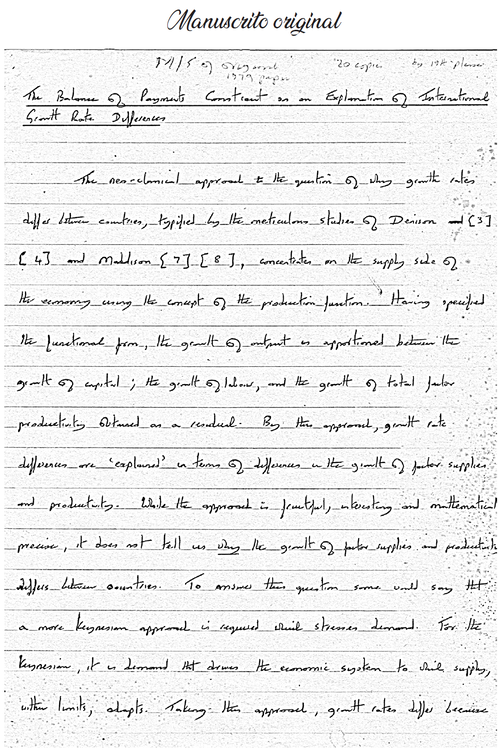 Manuscrito original
M/S of original 20 copies
1979 paper
The Balance of Payments Constraint as an Explanation of International
Growth Rate Differences
The neo-classical approach to the question of why growth rates
differ between countries, typified by the meticulous studies of Denison and [3]
[4] and Maddison [7] [8], concentrates on the supply side of
the economy using the concept of the production function. Having specified
the functional form, the growth of output is apportioned between the
growth of capital; the growth of labour, and the growth of total factor
productivity obtained as a residual. By this approach, growth rate
differences are 'explained' in terms of differences in the growth of factor supplies
and productivity. While the approach is fruitful, interesting and mathematical
precise, it does not tell us why the growth of factor supplies and productivity
differs between countries. To answer this question some would say that
a more Keynesian approach is required which stresses demand. For the
Keynesian, it is demand that drives the economic system to which supply,
within limits, adapts. Taking this approach, growth rates differ because